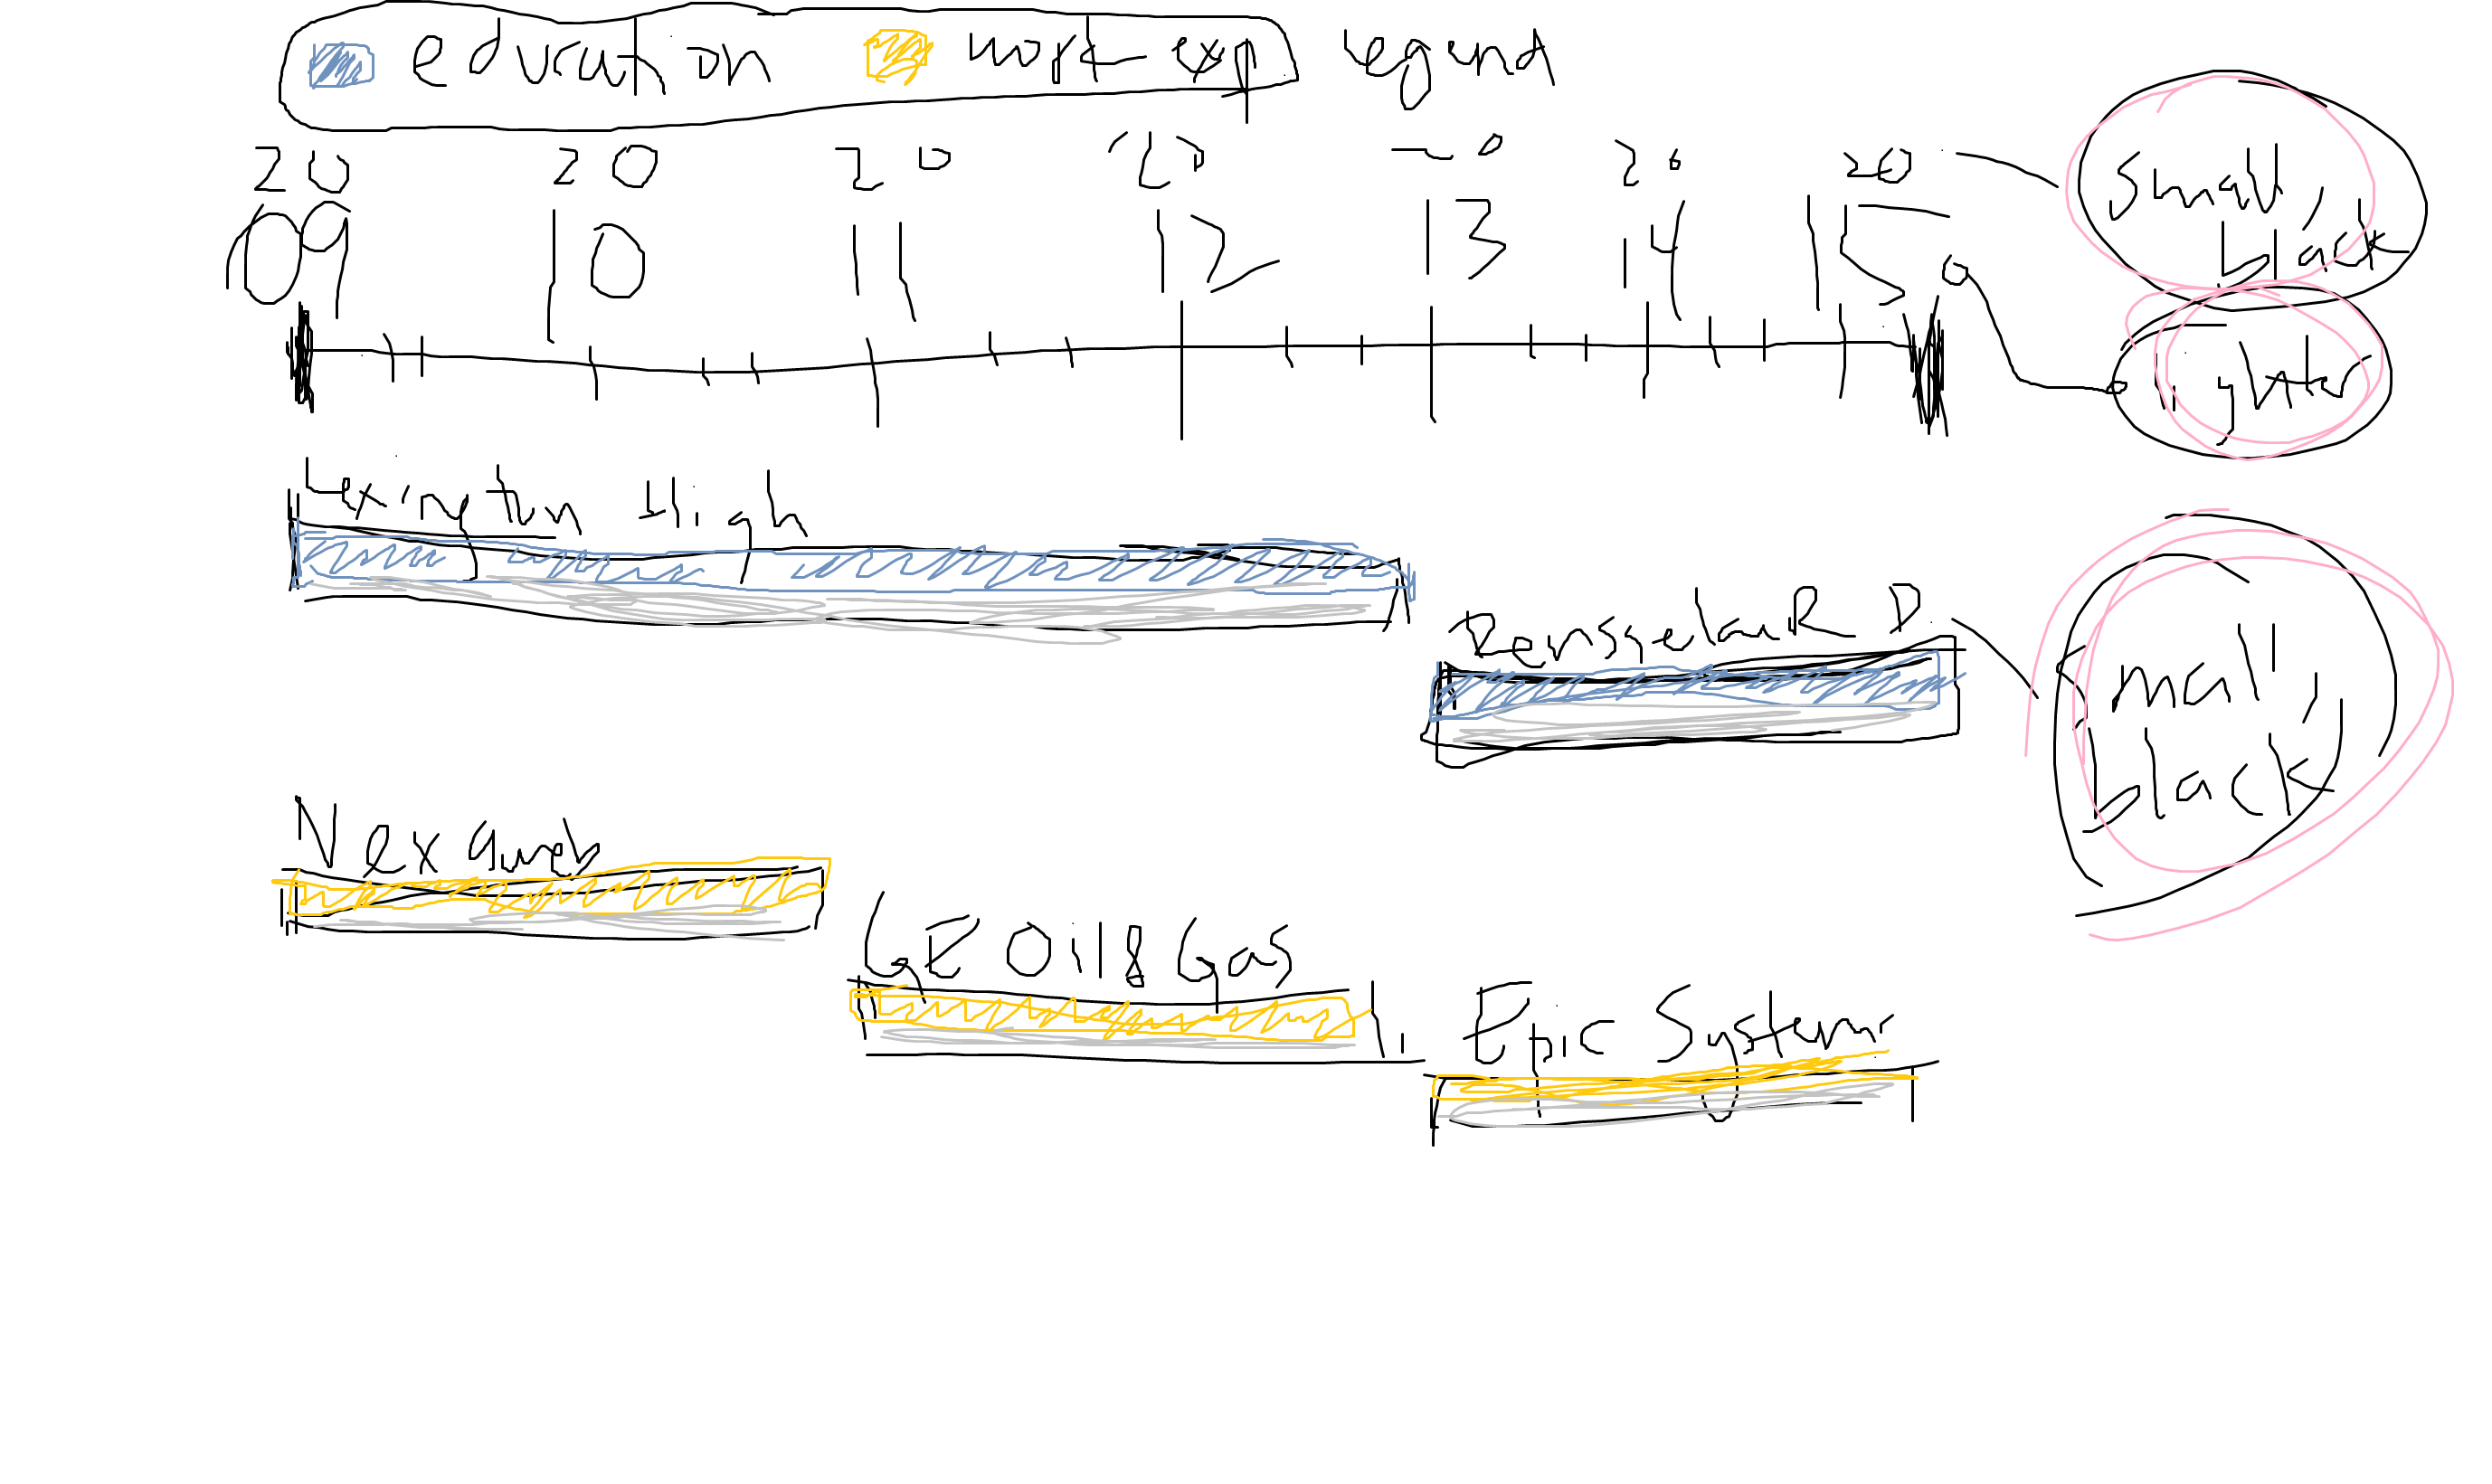 education work exp legend
20 20 20 20 20 20 20
09 10 11 12 13 14 15
small,
black
light
Lexington High
Rensselaer P
small,
black
Nex
GE Oil & Gas
Epic Systems